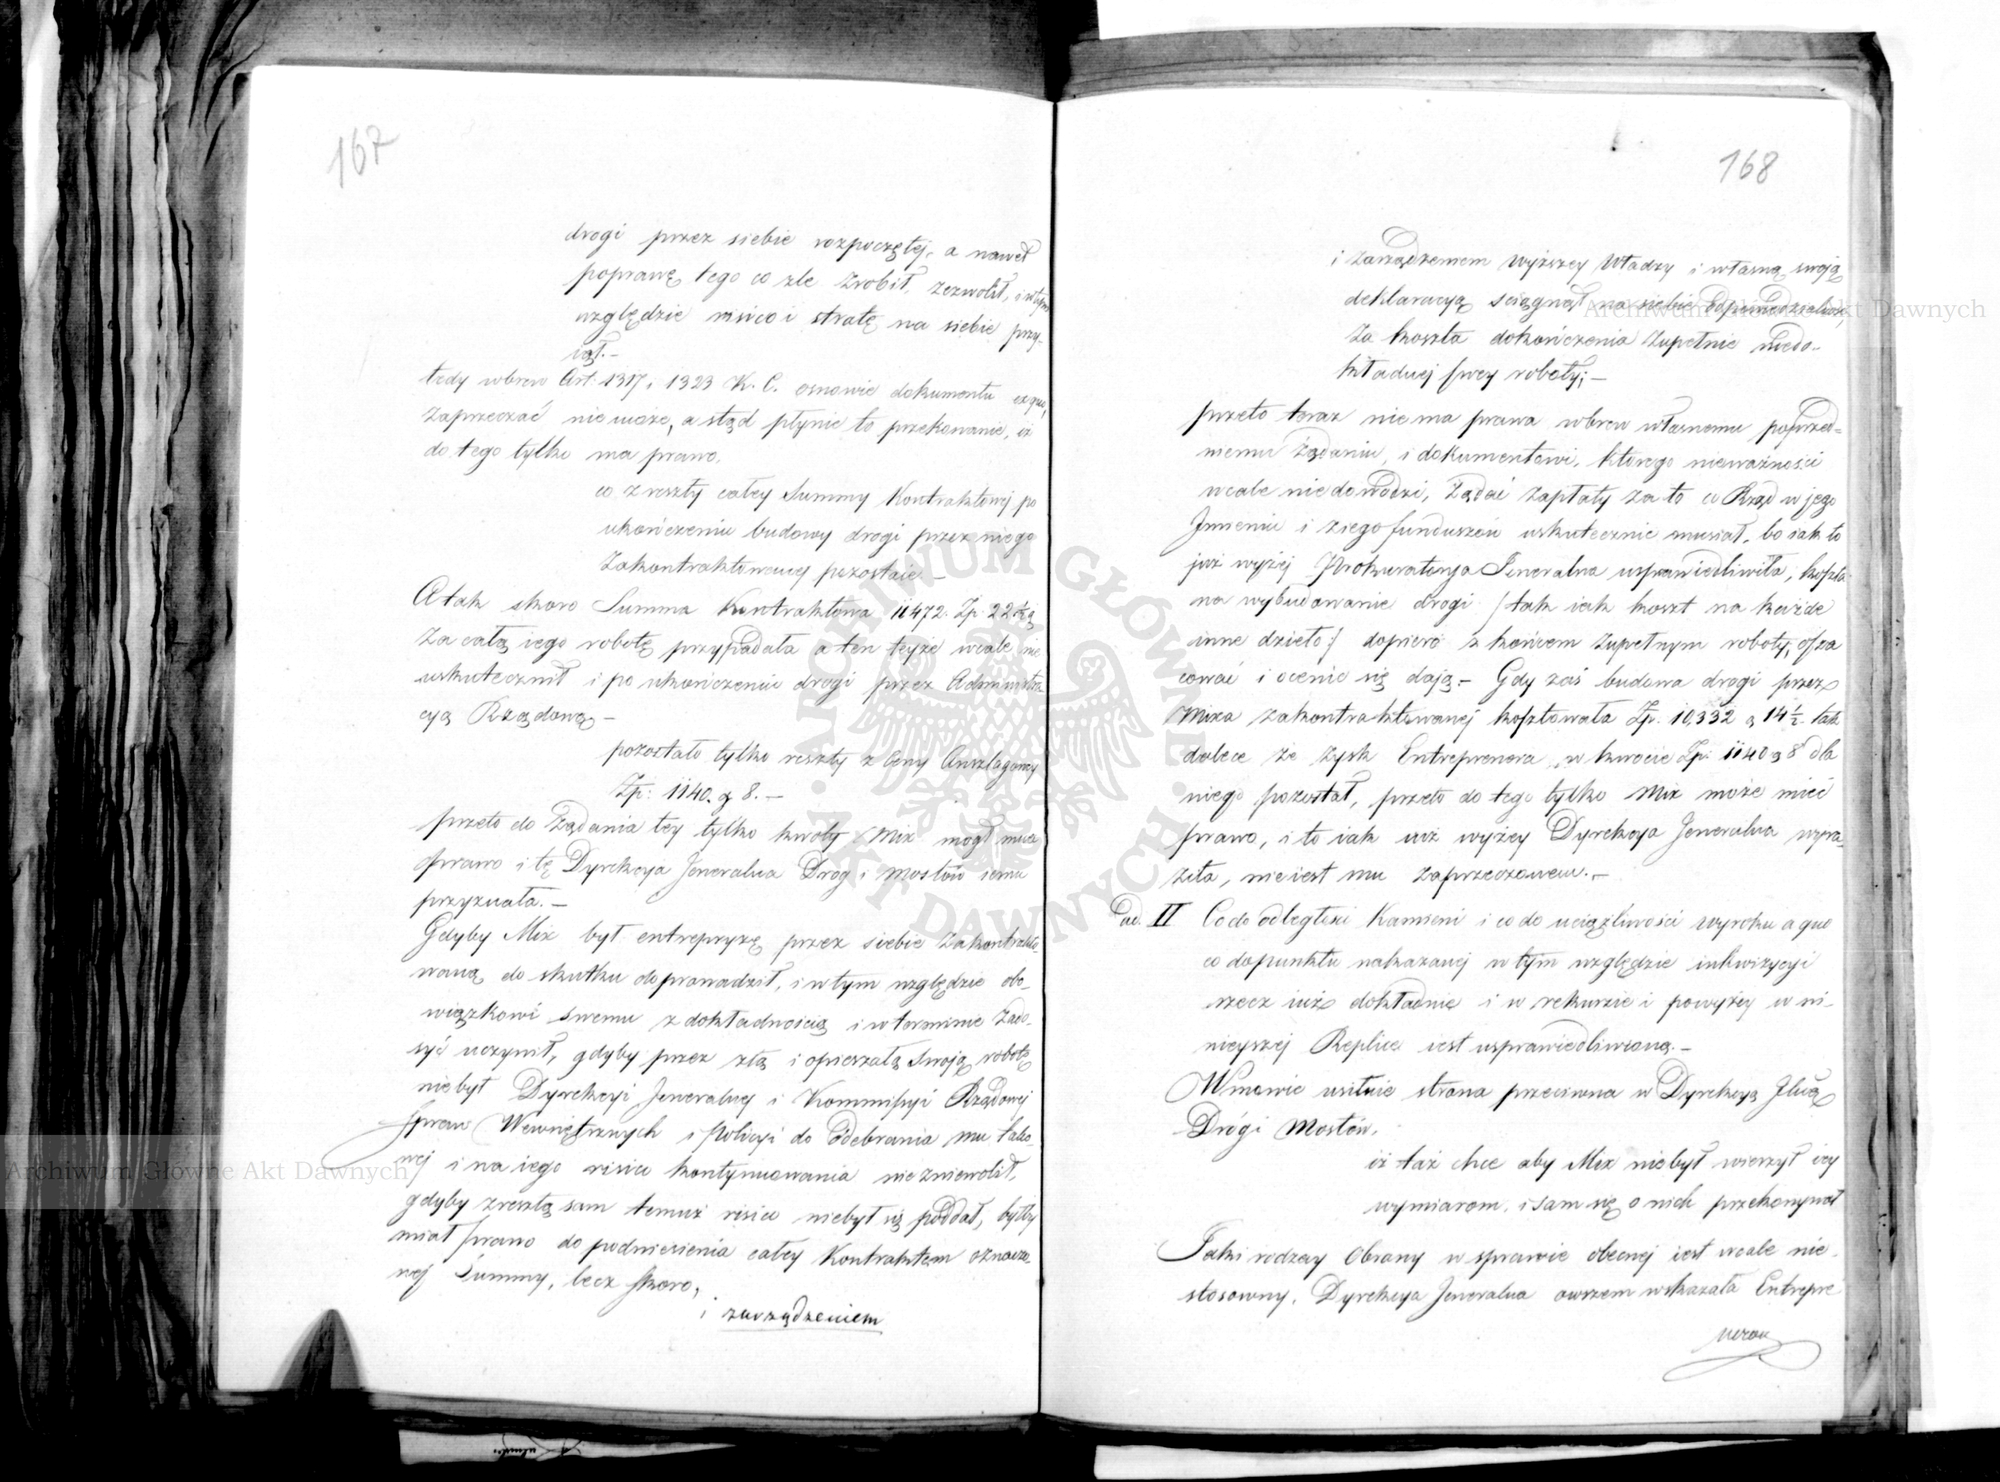 167
drogi przez siebie rozpoczętej, a nawet
poprawę tego co zle zrobił, zezwolił, i w tym
względzie risico i stratę na siebie przy-
iął.-
tedy wbrew Art: 1317, 1323 K. C. osnowie dokumentu
zaprzeczać nie może, a stąd płynie to przekonanie, iż
do tego tylko ma prawo,
co z reszty całey Summy Kontraktowej po
ukończeniu budowy drogi przez niego
zakontraktowaney pozostaie.-
A tak skoro Summa Kontraktowa 11472. Zp. 22½ g
za całą iego robotę przypadała a ten teyże wcale nie
uskutecznił i po ukończeniu drogi przez Administra
cyą Rządową -
pozostało tylko reszty z Ceny Anszlagowey
Zp: 1140. g 8.-
przeto do żądania tey tylko kwoty Mix mógł mieć
prawo i tę Dyrekcya Jeneralna Dróg i Mostów iemu
przyznała.-
Gdyby Mix był entrepryzę przez siebie zakontrakto-
waną do skutku doprowadził, i w tym względzie obo-
wiązkowi swemu z dokładnością i w terminie zado-
syć uczynił, gdyby przez złą i opieszałą swoją robotę
nie był Dyrekcyi Jeneralney i Kommissyi Rządowej
Spraw Wewnętrznych i Policyi do odebrania mu tako-
wej i na iego risico kontynuowania nie zniewolił,
gdyby zresztą sam temuż risico niebył się poddał, byłby
miał prawo do podniesienia całey Kontraktem oznaczo-
nej Summy, lecz skoro,
i zarządzeniem
168
i zarządzeniem wyższey Władzy i własną swoją
deklaracyą ściągnął na siebie odpowiedzialność,
za koszta dokończenia zupełnie niedo-
kładnej swey roboty;-
przeto teraz nie ma prawa wbrew własnemu poprzed-
niemu żądaniu, i dokumentowi, którego nieważności
wcale niedowodzi, żądać zapłaty za to co Rząd w jego
Jmieniu i z iego funduszów uskutecznić musiał, bo iak to
już wyżej Prokuratorya Jeneralna usprawiedliwiła, koszta
na wybudowanie drogi /: tak iak koszt na każde
inne dzieło :/ dopiero z końcem zupełnym roboty, osza
cować i ocenić się dają.- Gdy zaś budowa drogi przez
Mixa zakontraktowanej kosztowała Zp. 10,332 g 14½ tak
dalece że zysk Entreprenera w kwocie Zp. 1140 g 8 dla
niego pozostał, przeto do tego tylko Mix może mieć
prawo, i to iak iuż wyżey Dyrekcya Jeneralna wyra-
ziła, nieiest mu zaprzeczonem.-
ad. II Co do odległości Kamieni i co do uciążliwości wyroku a quo
co do punktu nakazanej w tym względzie inkwizycyi
rzecz iuż dokładnie i w rekursie i powyżey w ni-
nieyszej Replice iest usprawiedliwioną.-
Wmowić usiłuie strona przeciwna w Dyrekcyą Jlną
Dróg i Mostów,
iż taż chce aby Mix niebył wierzył iey
wymiarom, i sam się o nich przekonywał
Taki rodzay Obrony w sprawie obecnej iest wcale nie-
stosowny, Dyrekcya Jeneralna owszem wskazała Entrepre
nerow
ARCHIWUM GŁÓWNE AKT DAWNYCH
Archiwum Główne Akt Dawnych
Archiwum Główne Akt Dawnych